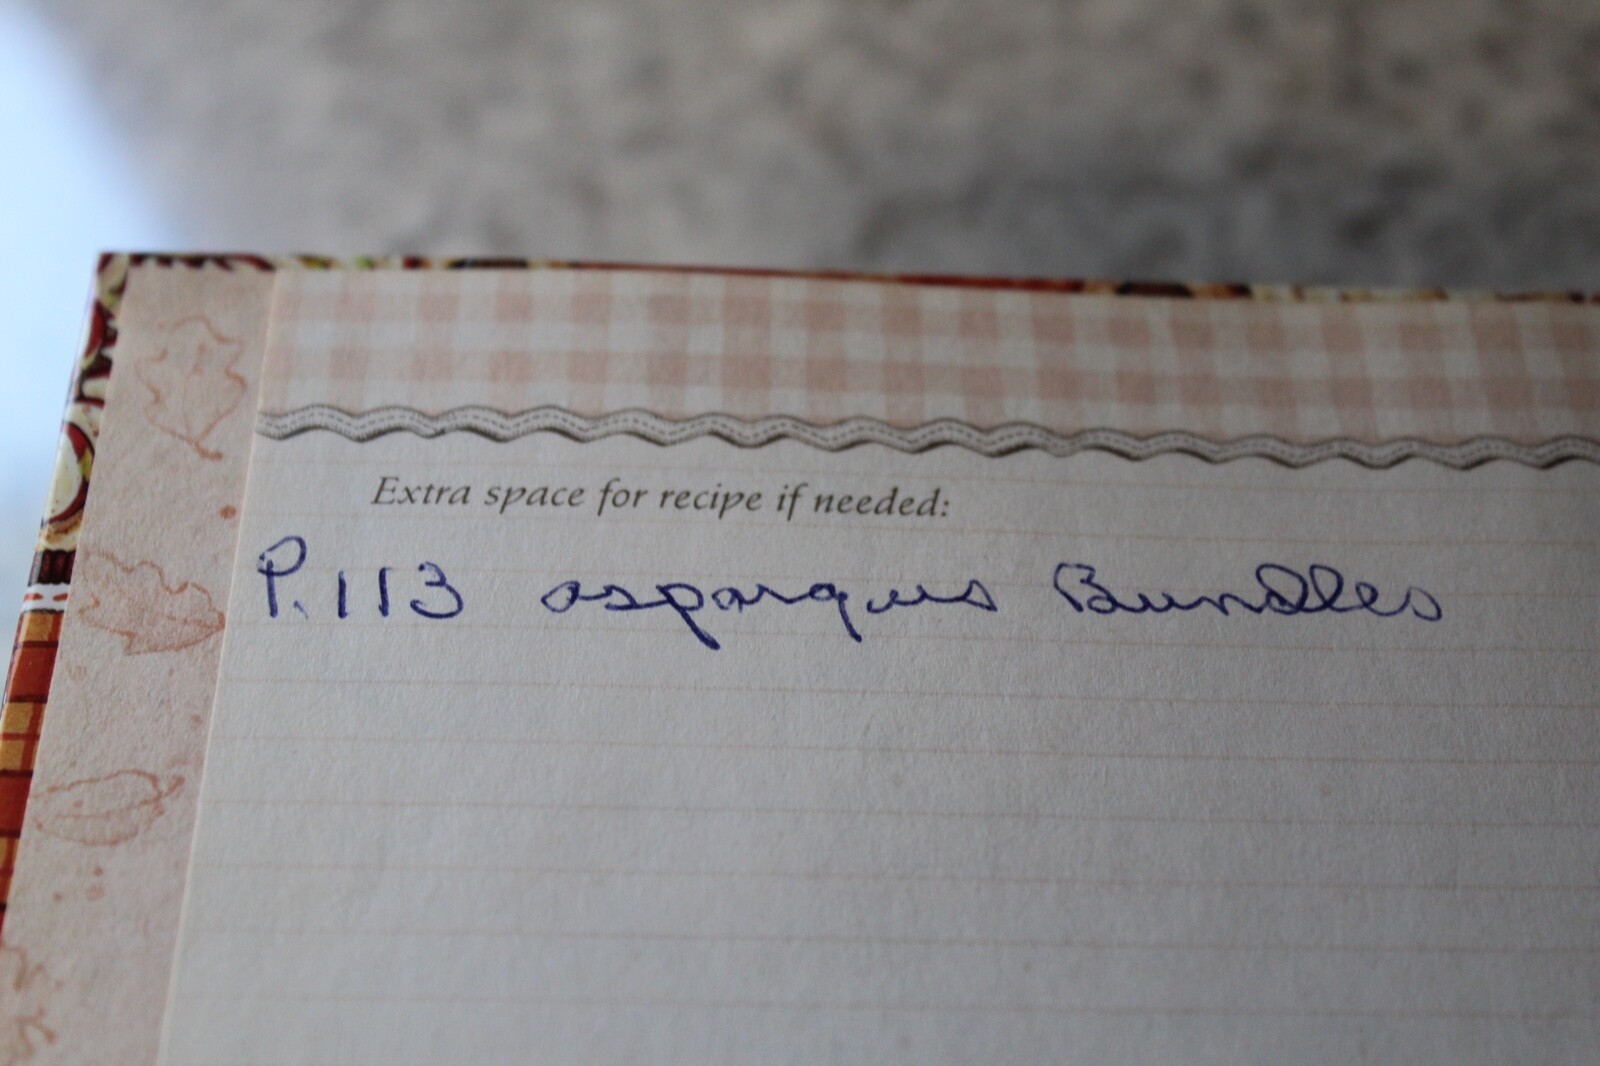 Extra space for recipe if needed:
P. 113 asparagus Bundles